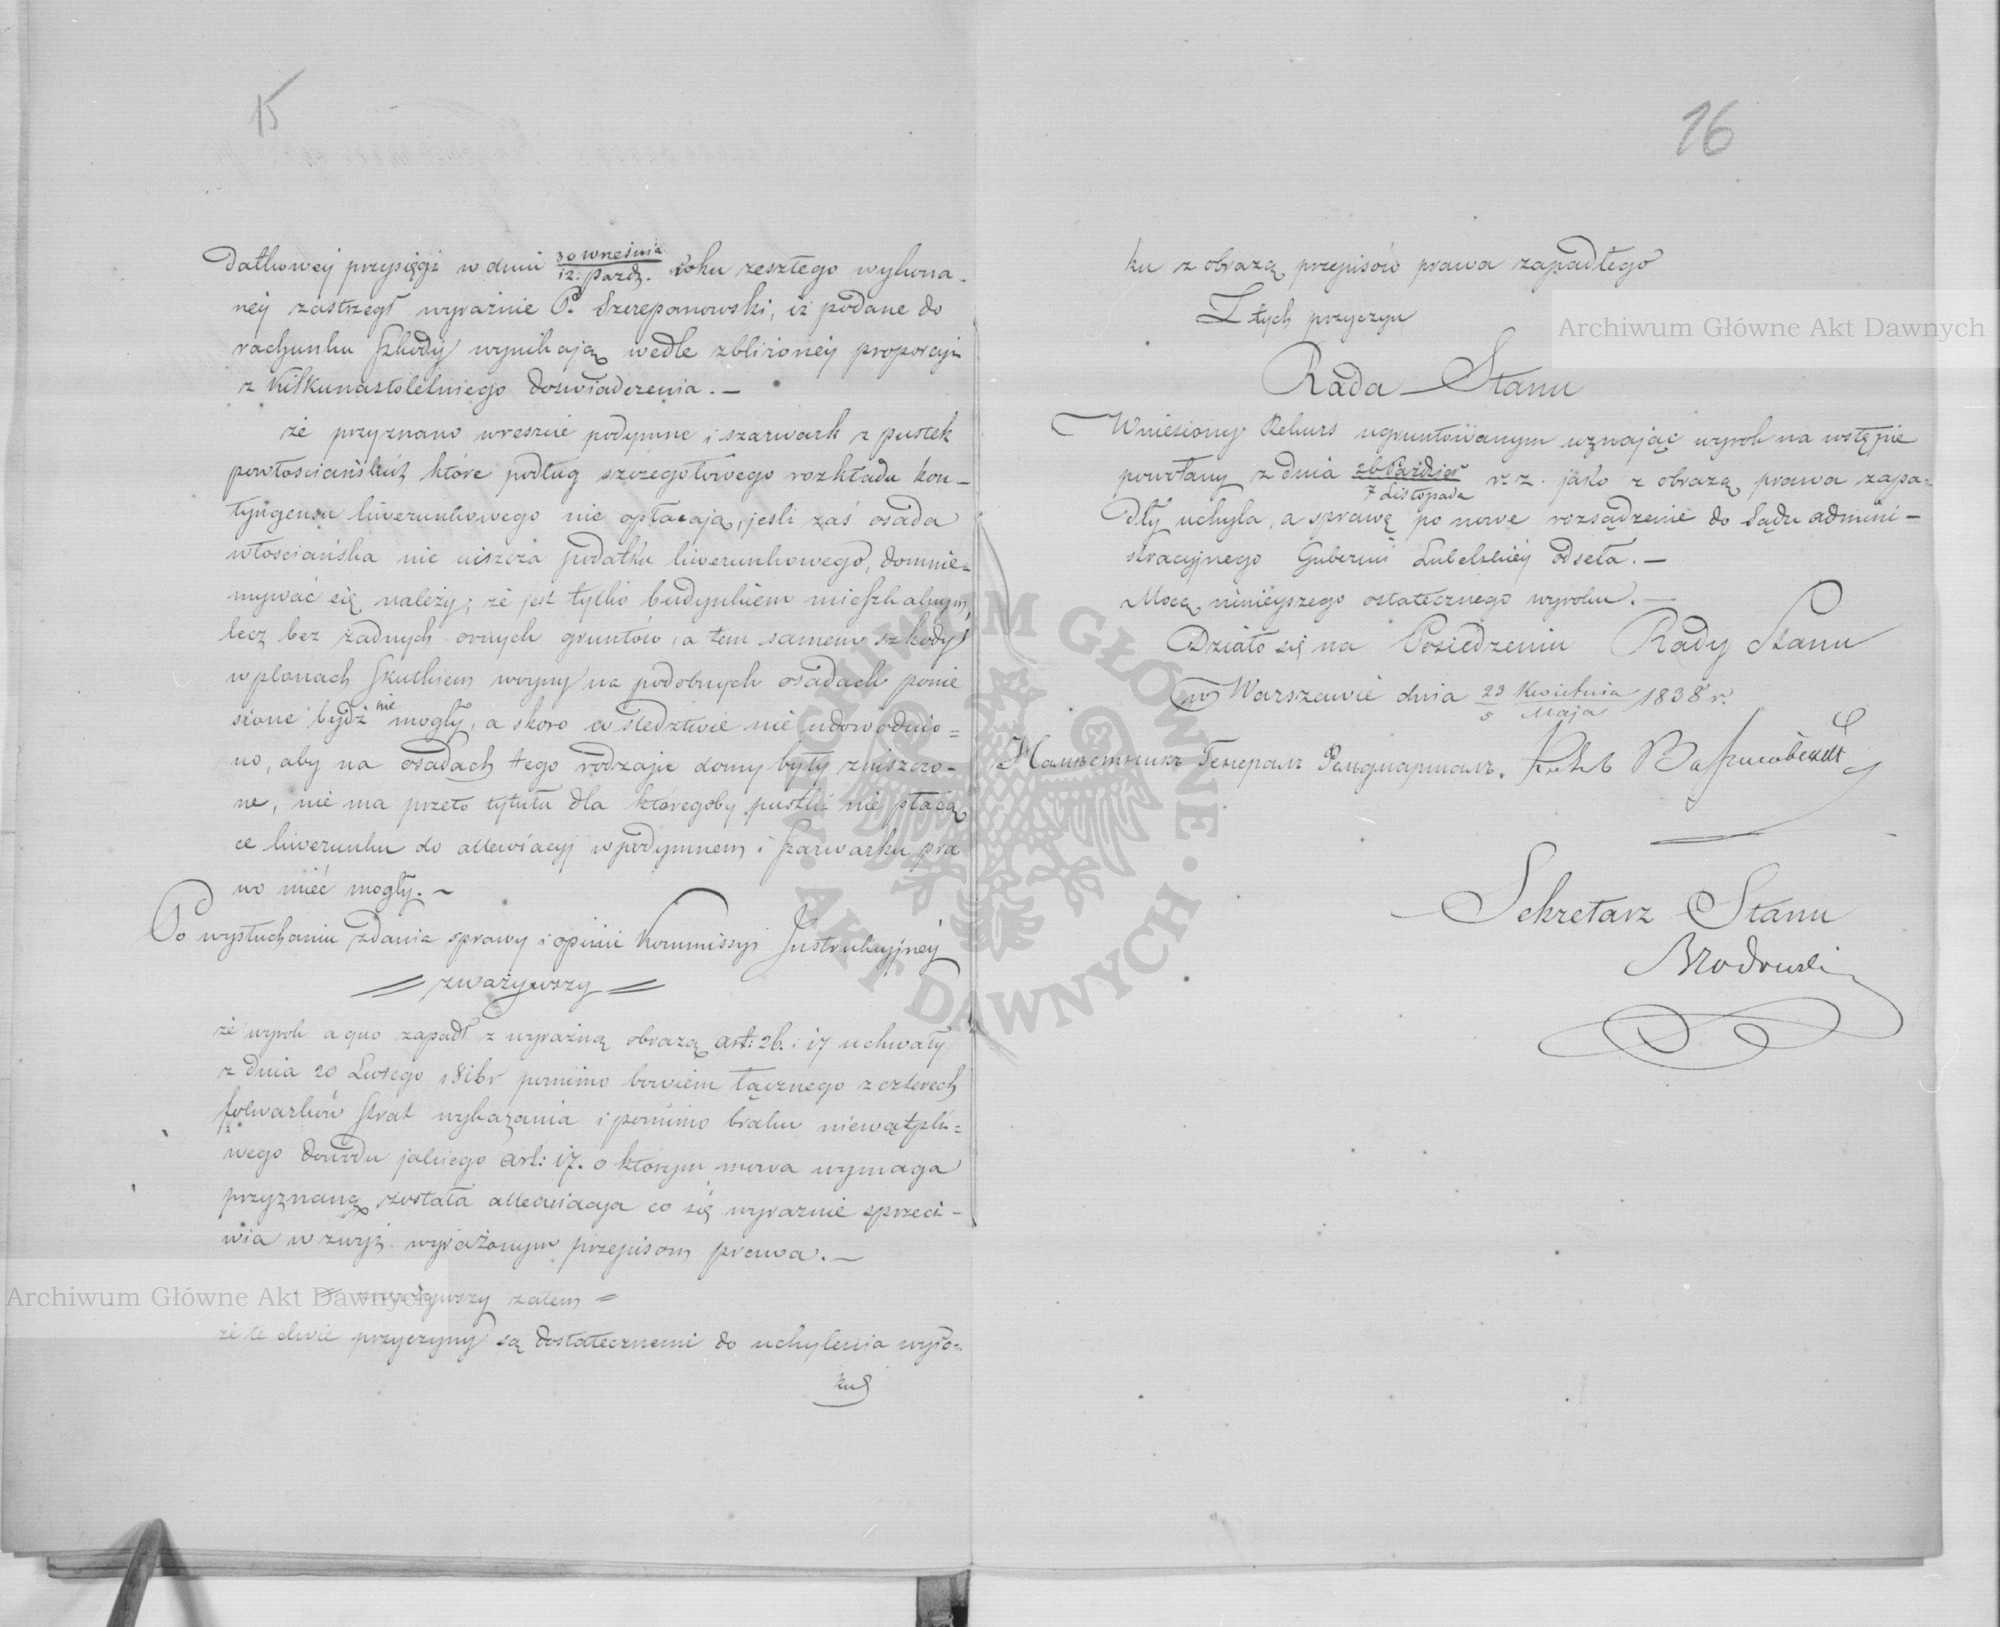 15
datkowey przysięgi w dniu 30 września / 12. Pazdz. roku zeszłego wykona-
ney zastrzegł wyraźnie P. Szczepanowski, iż podane do
rachunku szkody wynikają wedle zbliżoney proporcyi
z kilkunastoletniego doświadczenia. —
że przyznano wreszcie podymne i szarwark z pustek
powłościańskich, które podług szczegołowego rozkładu kon-
tyngensu liwerunkowego nie opłacają, jeśli zaś osada
włościańska nie uiszcza podatku liwerunkowego, domnie-
mywać się należy, że jest tylko budynkiem mieszkalnym,
lecz bez żadnych ornych gruntów, a tem samem szkody
w plonach skutkiem woyny na podobnych osadach ponie
sione bydź nie mogły, a skoro w śledztwie nie udowodnio=
no, aby na osadach tego rodzaju domy były zniszczo-
ne, nie ma przeto tytułu dla któregoby pustki nie płacą
ce liwerunku do allewiacyi w podymnem i szarwarku pra
wo mieć mogły. —
Po wysłuchaniu zdania sprawy i opinii Kommissyi Instrukcyjney
= zważywszy =
że wyrok a quo zapadł z wyraźną obrazą art: 26. i 17 uchwały
z dnia 20 Lutego 1816 r pomimo bowiem łącznego z czterech
folwarków strat wykazania i pomimo braku niewątpli=
wego dowodu jakiego art: 17. o którym mowa wymaga
przyznaną została allewiacya co się wyraźnie sprzeci-
wia w zwyż wyrażonym przepisom prawa. —
= zważywszy zatem =
że te dwie przyczyny są dostatecznemi do uchylenia wyro-
ku
16
ku z obrazą przepisów prawa zapadłego
Z tych przyczyn
Rada Stanu
Wniesiony Rekurs ugruntowanym uznając wyrok na wstępie
powołany z dnia 26 Paździer / 7 Listopada r. z. jako z obrazą prawa zapa-
dły uchyla, a sprawę po nowe rozsądzenie do Sądu admini-
stracyjnego Gubernii Lubelskiéy odseła. —
Mocą ninieyszego ostatecznego wyroku. —
Działo się na Posiedzeniu Rady Stanu
w Warszawie dnia 23 Kwietnia / 5 Maja 1838 r.
Намѣстникъ Генералъ Фельдмаршалъ.
Sekretarz Stanu
Archiwum Główne Akt Dawnych
Archiwum Główne Akt Dawnych
ARCHIWUM GŁÓWNE · AKT DAWNYCH ·